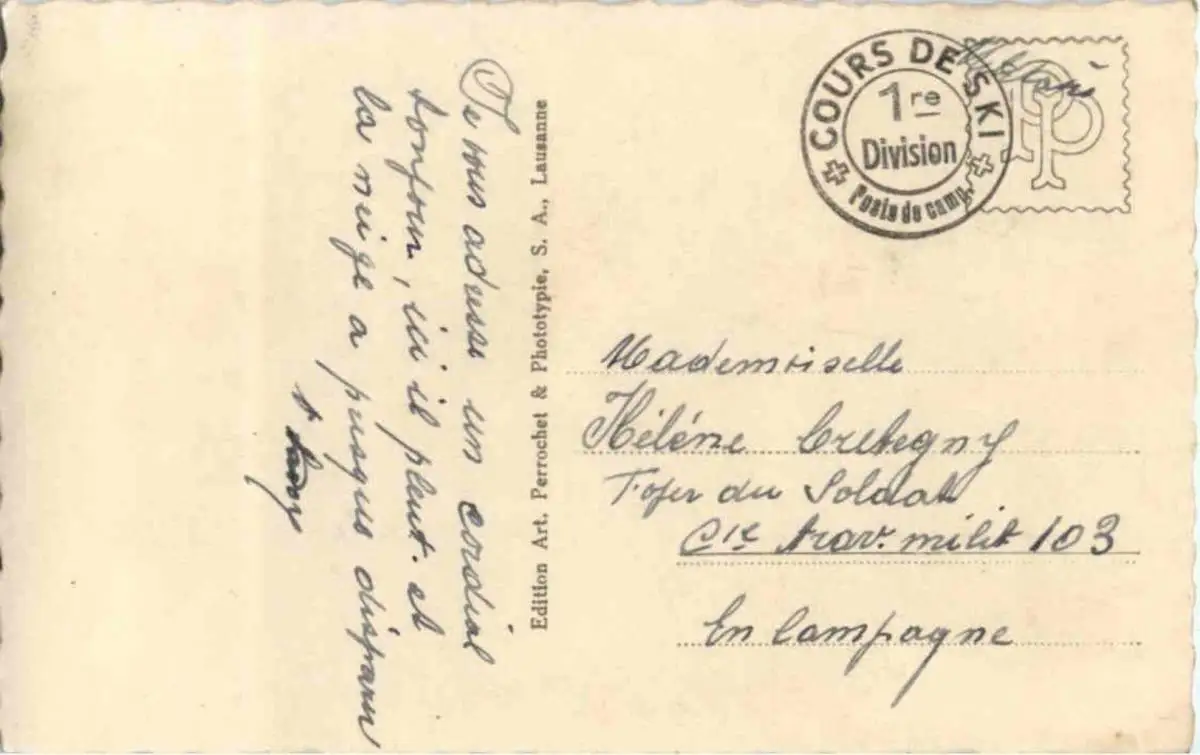 Je vous adresse un cordial
bonjour, ici il pleut. et
la neige a presque disparu
Edition Art. Perrochet & Phototypie, S. A., Lausanne
COURS DE SKI
1re
Division
Poste de camp.
PP
Mademoiselle
Hélène Cretegny
Foyer du Soldat
Cie trav. milit 103
En Campagne